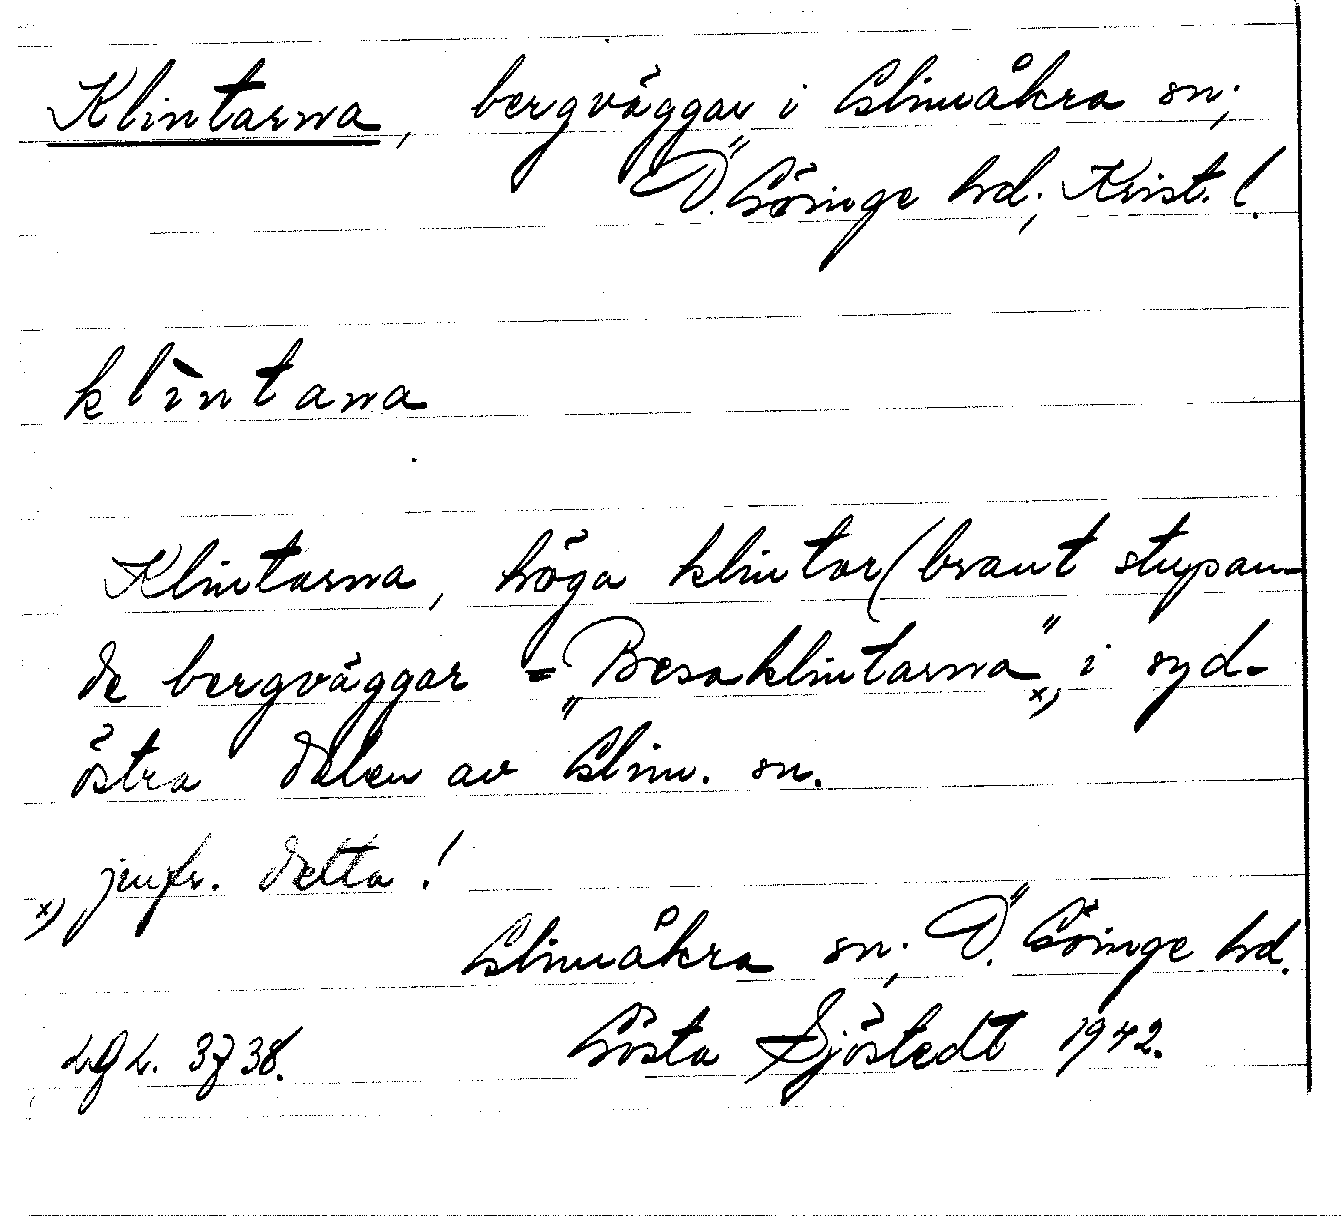 Klintarna, bergväggar i Glimåkra sn;
Ö. Göinge hd; Krist. l.
klìntana
Klintarna, höga klintar (brant stupan-
de bergväggar = „Besaklintarna” x) i syd-
östra delen av Glim. sn.
x) jmfr. detta!
Glimåkra sn; Ö. Göinge hd.
Gösta Sjöstedt 1942.